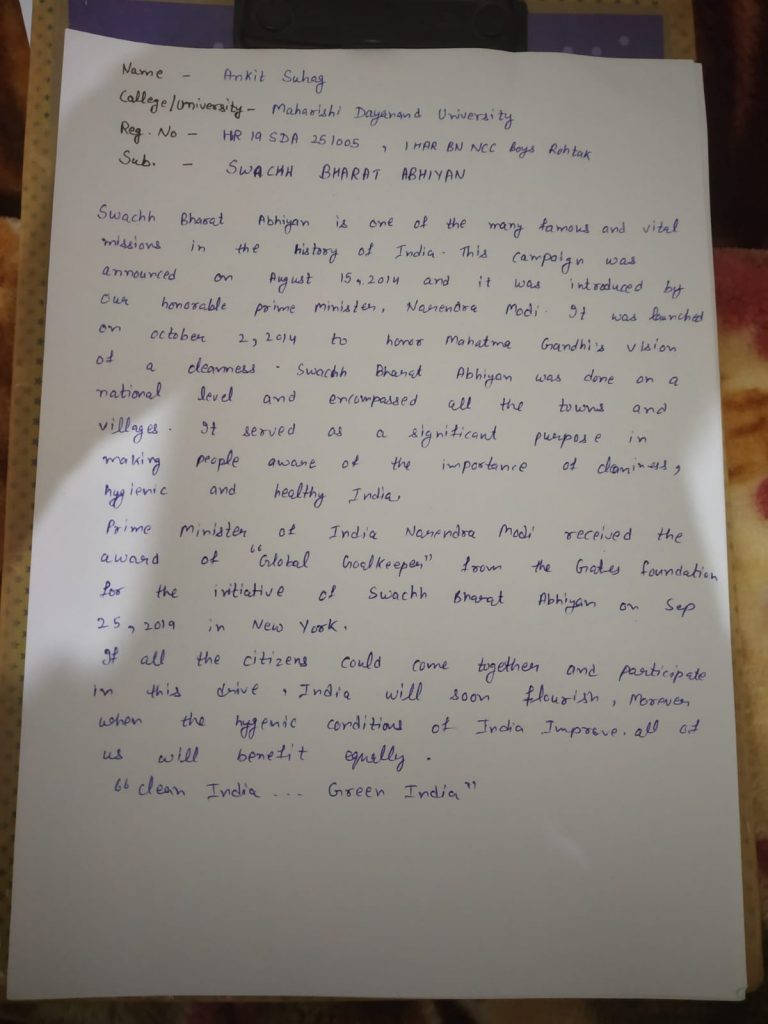 Name - Ankit Suhag
College/University - Maharishi Dayanand University
Reg. No - HR 19 SDA 251005 , 1 HAR BN NCC Boys Rohtak
Sub. - SWACHH BHARAT ABHIYAN
Swachh Bharat Abhiyan is one of the many famous and vital
missions in the history of India. This campaign was
announced on August 15, 2014 and it was introduced by
Our honorable prime minister, Narendra Modi. It was launched
on october 2, 2014 to honor Mahatma Gandhi's vision
of a cleanness. Swachh Bharat Abhiyan was done on a
national level and encompassed all the towns and
villages. It served as a significant purpose in
making people aware of the importance of claniness,
hygienic and healthy India,
Prime Minister of India Narendra Modi received the
award of "Global Goalkeeper" from the Gates foundation
for the initiative of Swachh Bharat Abhiyan on Sep
25, 2019 in New York.
If all the citizens could come together and participate
in this drive, India will soon flourish, Morever
when the hygenic conditions of India Improve. all of
us will benefit equally.
"Clean India ... Green India"